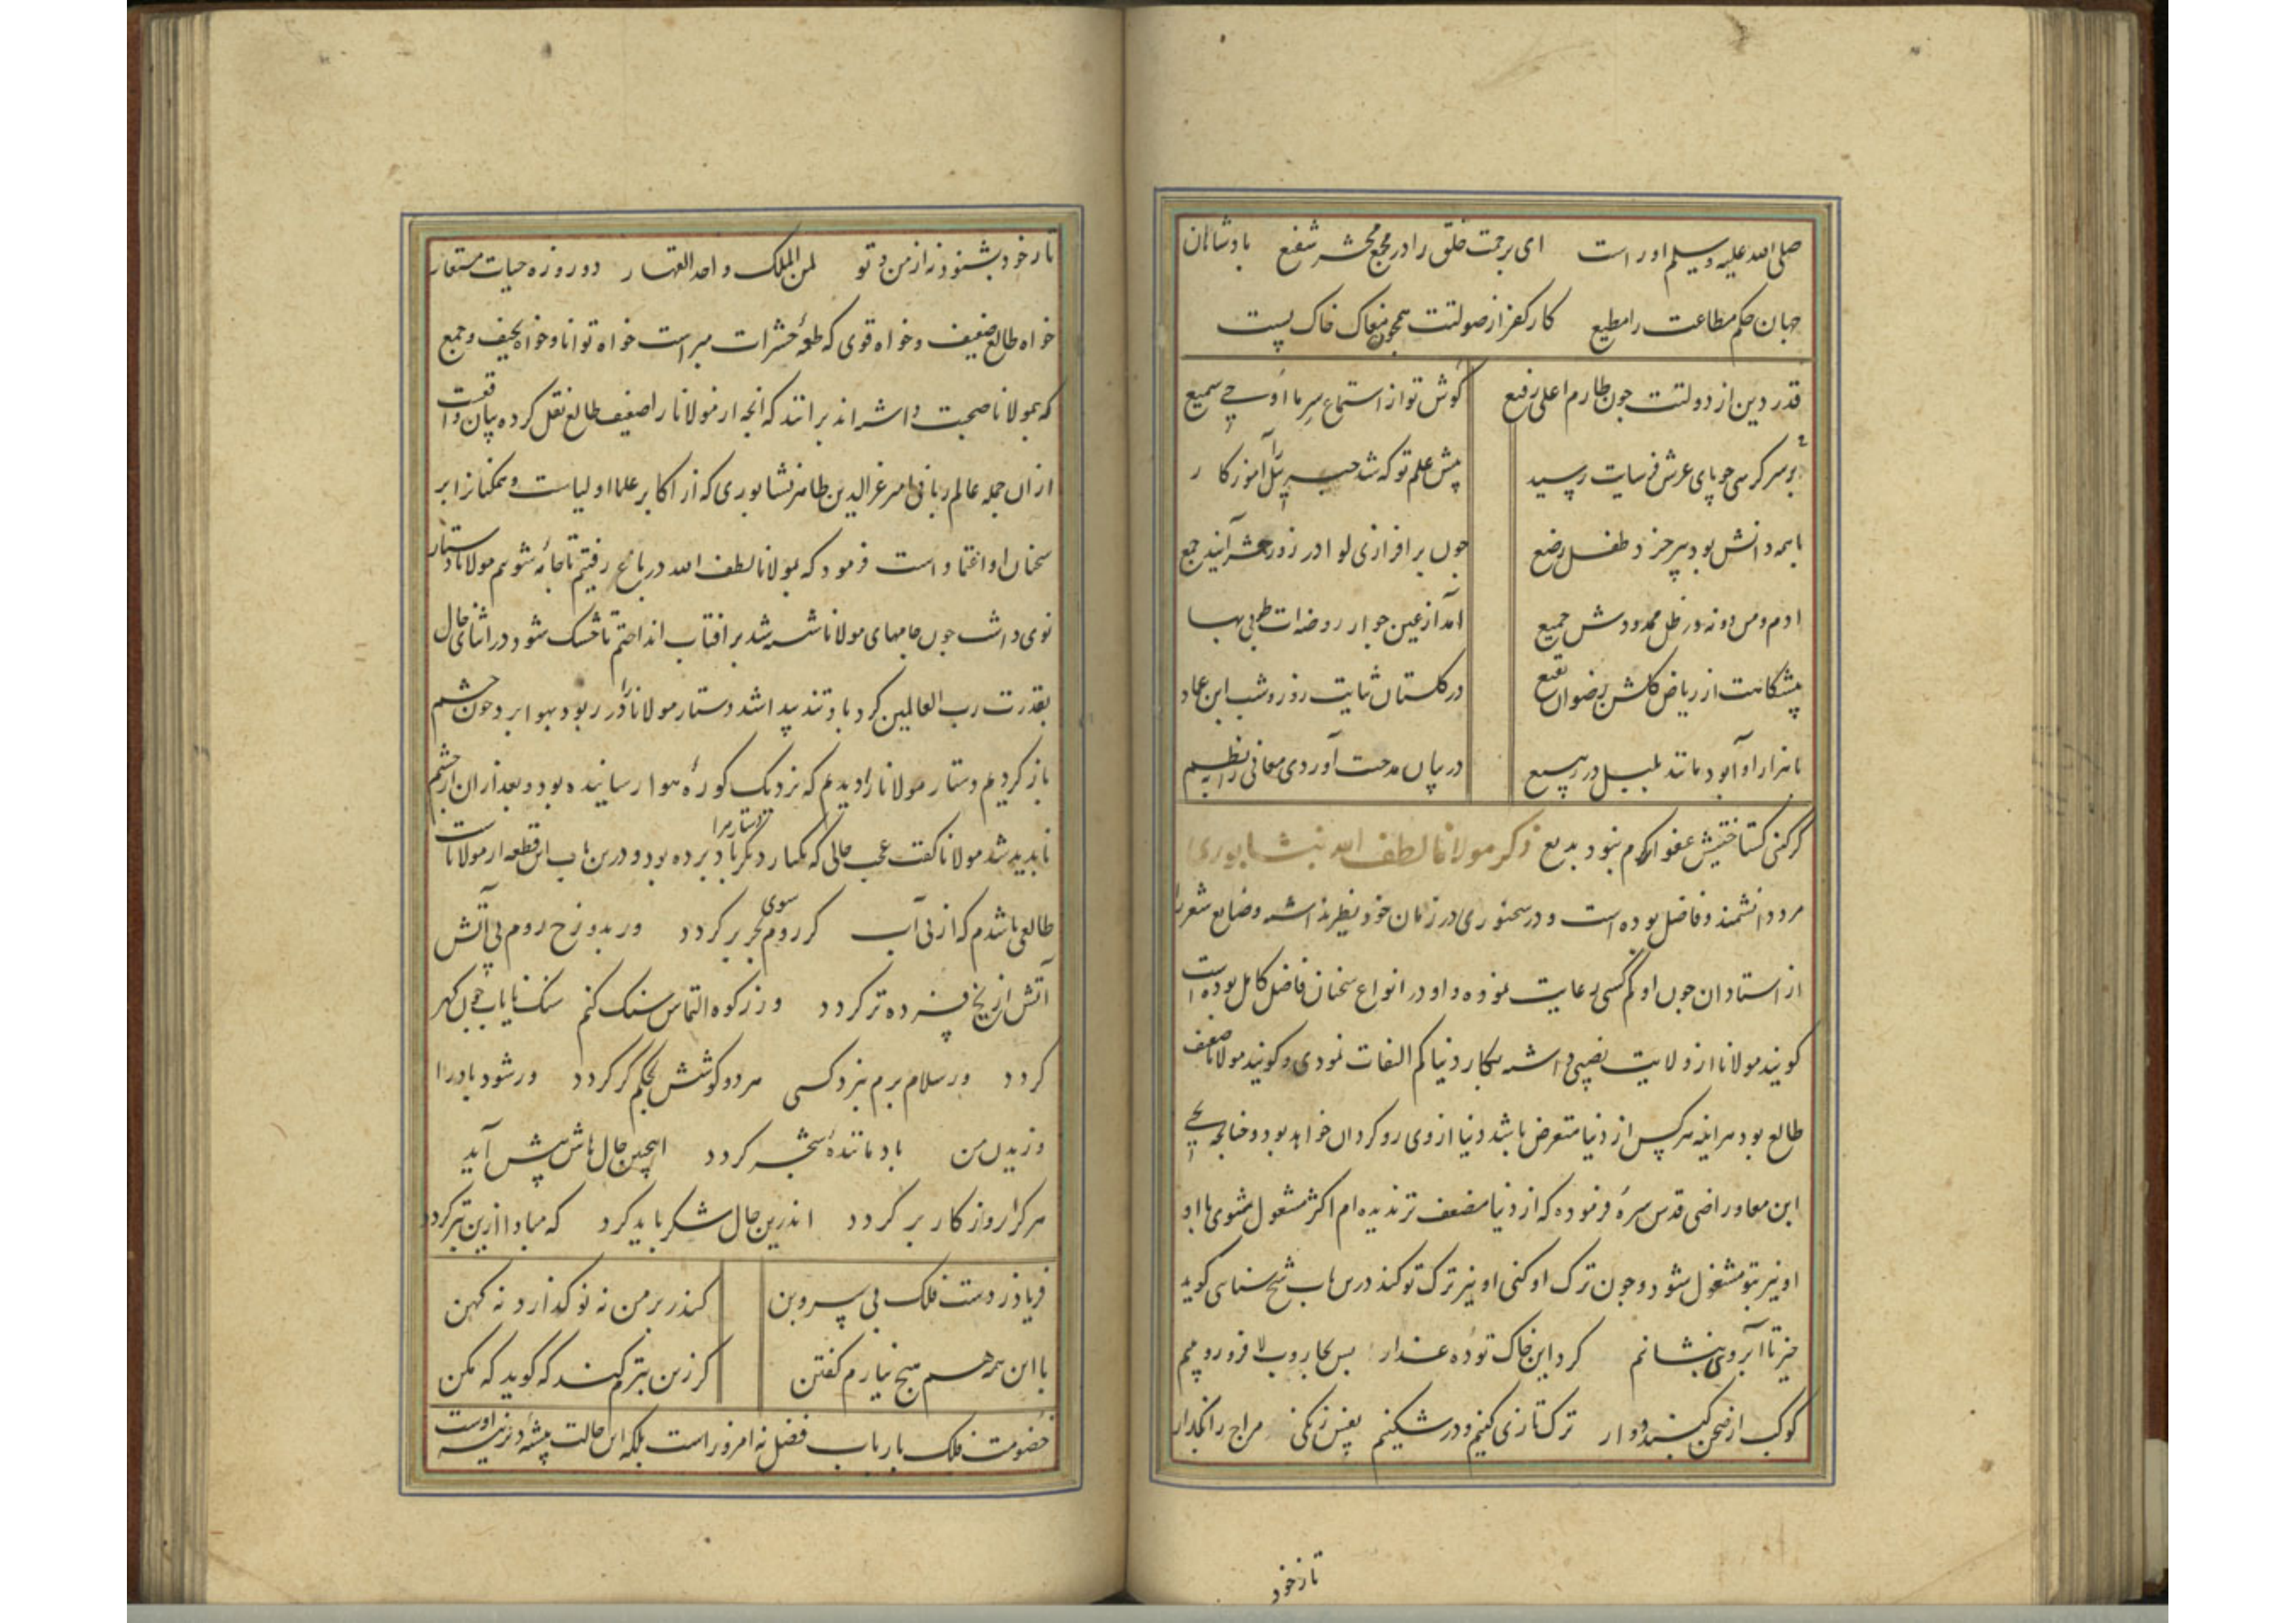 صلی الله علیه وسلم اوراست ای برحمت خلق را در مجمع محشر شفیع پادشاهان
جهان حکم مطاعت را مطیع کار کفر از صولتت همچون مغاک خاک پست
قدر دین از دولتت چون طارم اعلی رفیع گوش تو از استماع سر ما اوحی سمیع
بر سر کرسی چو پای عرش فرسایت رسید پیش علم تو که شد جبرئیل آموزگار
با همه دانش بود پیر خرد طفل رضیع چون برافرازی لوا در روز حشر آیند جمع
آدم و من دونه در ظل ممدودش جمیع آمد از عین جوار روضه‌ات طوبی بها
پیشگاهت از ریاض گلشن رضوان بقیع در گلستان ثنایت روز و شب ابن عماد
با هزار آوا بود مانند بلبل در ربیع در بیان مدحت آوردی معانی را نظم
گر کنی گستاخیش عفو از کرم نبود بدیع ذکر مولانا لطف الله نیشابوری
مرد دانشمند و فاضل بوده است و در سخنوری در زمان خود نظیر نداشته و صنایع شعر را
از استادان چون او کم کسی رعایت نموده و او در انواع سخنان فاضل کامل بوده است
گویند مولانا از ولایت نصیبی داشته بکار دنیا کم التفات نمودی و گویند مولانا ضعیف
طالع بود هر آینه هر کس از دنیا متعرض باشد دنیا از وی روگردان خواهد بود و چنانچه یحیی
ابن معاد راضی قدس سره فرموده که از دنیا مضعف تر ندیده‌ام اکثر مشغول میشوی با او
او نیز بتو مشغول شود و چون ترک او کنی او نیز ترک تو کند درین باب شیخ سنائی گوید
خیز تا آبروی بنشانم گرد این خاک توده غدار پس بجاروب لا فرو روییم
کوکب از صحن گنبد دوار ترک تازی کنیم و در شکنیم نفس زنگی مزاج را بازار
تا ز خود
تا ز خود بشنود نه از من و تو لمن الملک واحد القهار دو روزه حیات مستعار
خواه طالع ضعیف و خواه قوی که طعمه حشرات مبراست خواه توانا و خواه نحیف و جمع
که بمولانا صحبت داشته‌اند برانند که آنچه از مولانا را ضعیف طالع نقل کرده بیان واقعست
از آن جمله عالم ربانی امیر عزالدین طاهر نشابوری که از اکابر علما و اولیاست و همکنان را بر
سخنان او اعتماد است فرمود که بمولانا لطف الله در باغ رفتیم تا جامه شویم مولانا دستار
نوی داشت چون جامهای مولانا شسته شد بر آفتاب انداختیم تا خشک شود در اثنای حال
بقدرت رب العالمین گرد باد تند پیدا شد دستار مولانا را در ربود بهوا برد چون چشم
باز کردیم دستار مولانا را دیدیم که نزدیک کوره هوا رسانیده بود و بعد از آن از چشم
ناپدید شد مولانا گفت عجب حالی که یکبار دیگر باد دستار مرا برده بود و درین باب این قطعه از مولاناست
طالعی باشدم که از پی آب گر روم سوی بحر بر گردد ور بدوزخ روم پی آتش
آتش از یخ فسرده‌تر گردد ور ز کوه التماس سنگ کنم سنگ نایاب چون گهر
گردد ور سلام برم بنزد کسی هر دو گوشش بحکم کر گردد ور شود باد را
وزیدن من باد ماننده شجر گردد اینچنین حالهاش پیش آید
هر کرا روزگار بر گردد اندرین حال شکر باید کرد که مبادا ازین بتر گردد
فریاد ز دست فلک بی سر و بن کندر بر من نه نو گذارد نه کهن
با این همه هم هیچ نیارم گفتن گر زین بترم کند که گوید که مکن
خصومت فلک با ارباب فضل نه امروز است بلکه این حالت پیشه دیرینه اوست